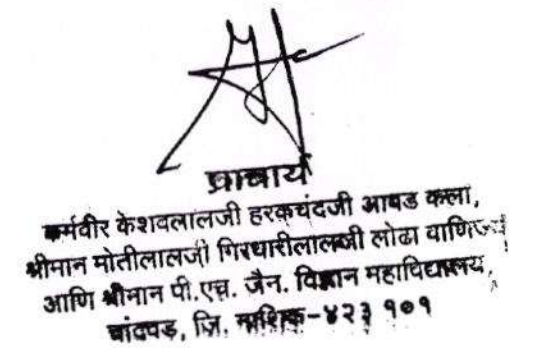 प्राचार्य
कर्मवीर केशवलालजी हरकचंदजी आबड कला,
श्रीमान मोतीलालजी गिरधारीलालजी लोढा वाणिज्य
आणि श्रीमान पी.एच. जैन. विज्ञान महाविद्यालय,
चांदवड, जि. नाशिक-४२३ १०१